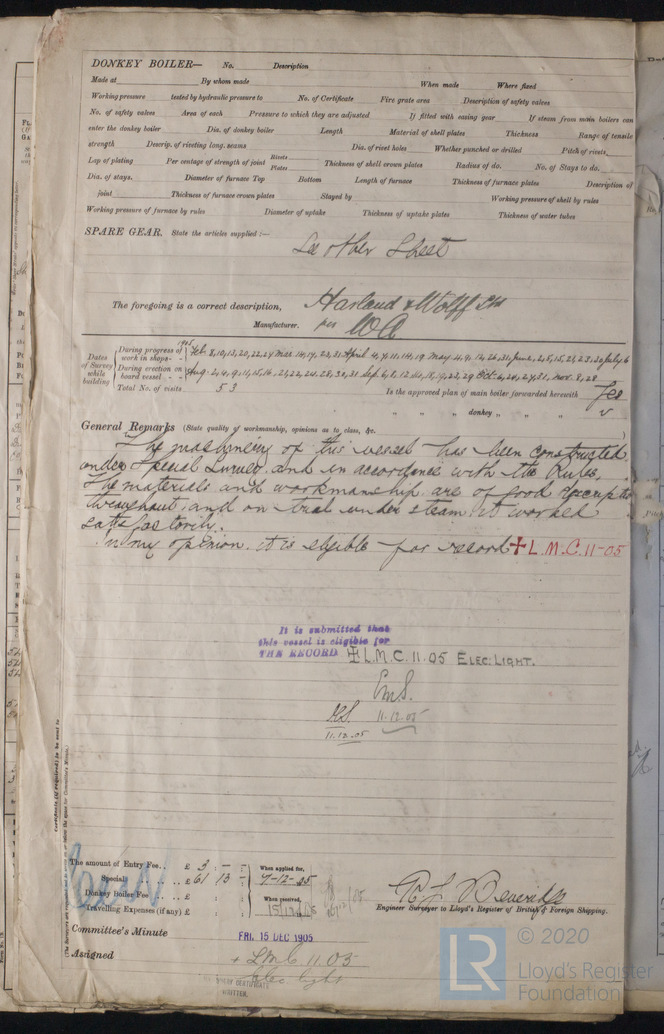 DONKEY BOILER— No. Description
Made at By whom made When made Where fixed
Working pressure tested by hydraulic pressure to No. of Certificate Fire grate area Description of safety valves
No. of safety valves Area of each Pressure to which they are adjusted If fitted with easing gear If steam from main boilers can
enter the donkey boiler Dia. of donkey boiler Length Material of shell plates Thickness Range of tensile
strength Descrip. of riveting long. seams Dia. of rivet holes Whether punched or drilled Pitch of rivets
Lap of plating Per centage of strength of joint Rivets Plates Thickness of shell crown plates Radius of do. No. of Stays to do.
Dia. of stays. Diameter of furnace Top Bottom Length of furnace Thickness of furnace plates Description of
joint Thickness of furnace crown plates Stayed by Working pressure of shell by rules
Working pressure of furnace by rules Diameter of uptake Thickness of uptake plates Thickness of water tubes
SPARE GEAR. State the articles supplied :—
See other Sheet
The foregoing is a correct description, Harland & Wolff Ltd
Manufacturer.
Dates of Survey while building
During progress of work in shops
1905
During erection on board vessel
Total No. of visits 53
Is the approved plan of main boiler forwarded herewith Yes
" " " donkey " " "
General Remarks (State quality of workmanship, opinions as to class, &c.
The machinery of this vessel has been constructed
under Special Survey and in accordance with the Rules,
The materials and workmanship are of good description
throughout, and on trial under steam it worked
satisfactorily.
In my opinion it is eligible for record + L.M.C. 11-05
It is submitted that
this vessel is eligible for
THE RECORD + L.M.C. 11.05 ELEC: LIGHT.
11.12.05
11.12.05
Certificate (if required) to be sent to
The amount of Entry Fee.. £ 3 : - :
Special £ 61 : 13 :
Donkey Boiler Fee £ : :
Travelling Expenses (if any) £ : :
When applied for,
9-12-05
When received,
Engineer Surveyor to Lloyd's Register of British & Foreign Shipping.
Committee's Minute FRI. 15 DEC 1905
Assigned + LMC 11.05
elec light
WRITTEN.
© 2020
LR
Lloyd's Register
Foundation